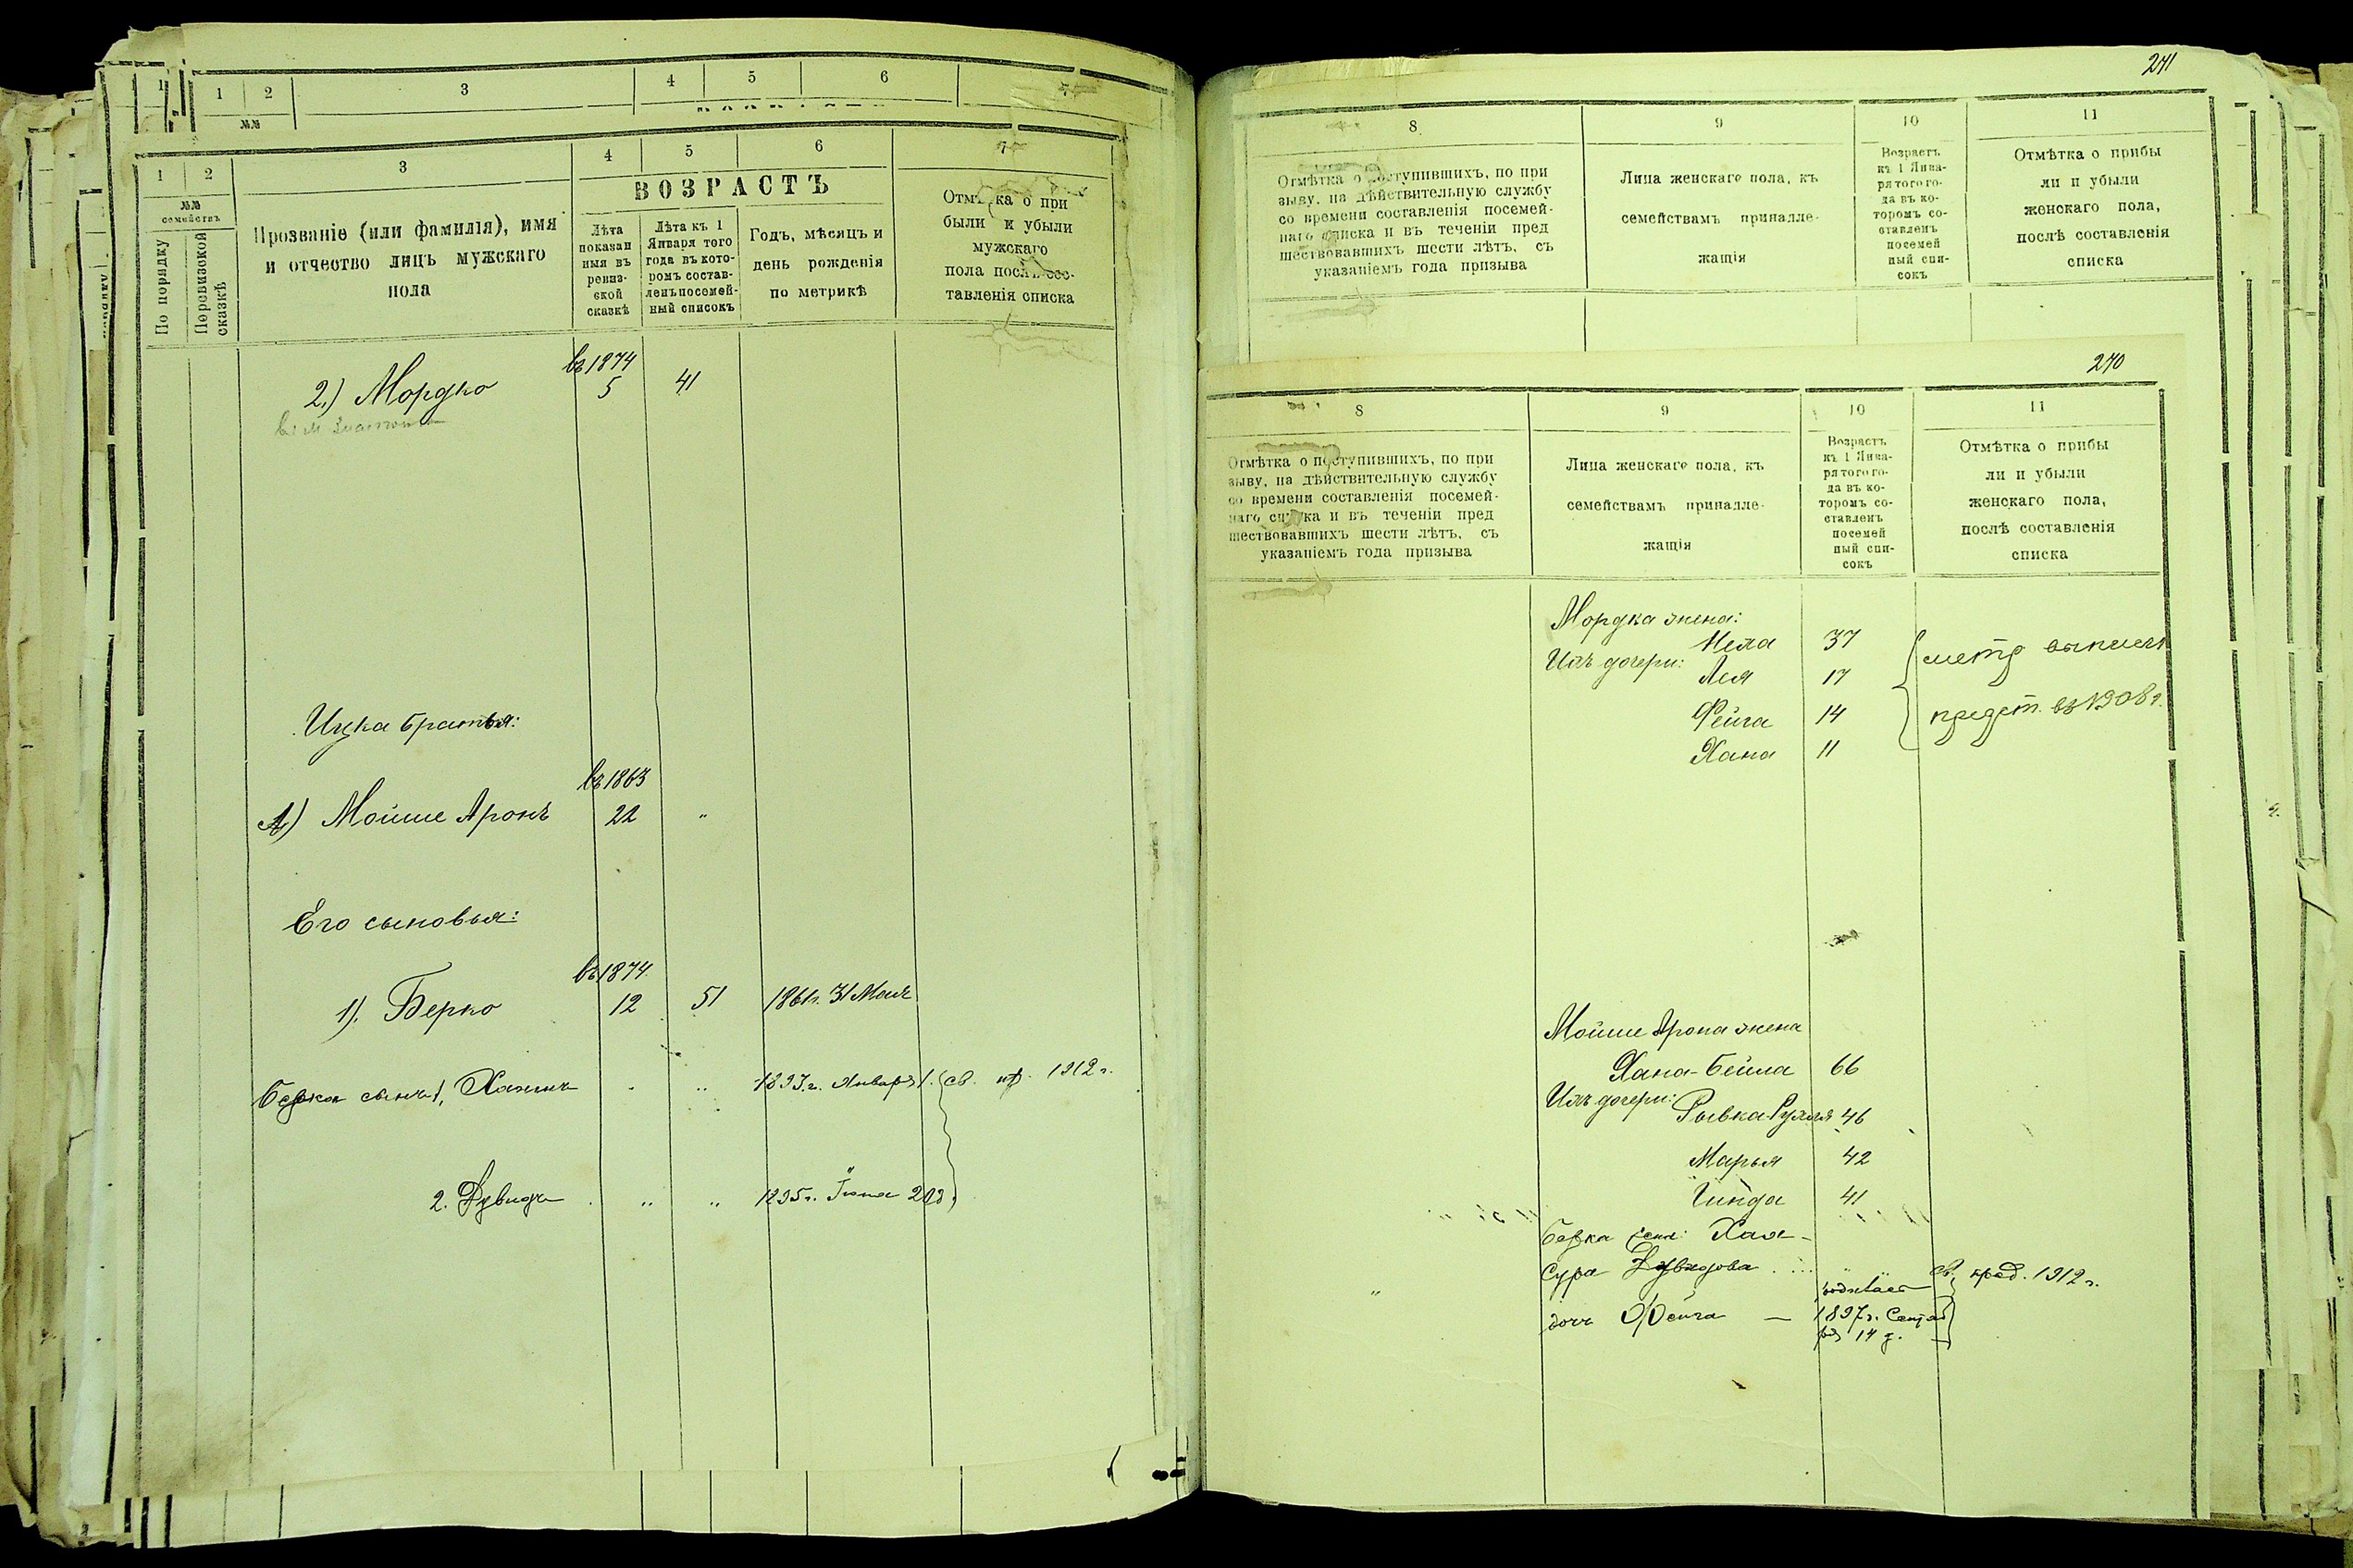 1
1
2
3
4
5
6
№№
1
2
3
4
5
6
7
№№
семействъ
По порядку
По ревизской сказкѣ
Прозваніе (или фамилія), имя
и отчество лицъ мужскаго
пола
ВОЗРАСТЪ
Лѣта
показан
ныя въ
ревиз-
ской
сказкѣ
Лѣта къ 1
Января того
года въ кото-
ромъ состав-
ленъ посемей-
ный списокъ
Годъ, мѣсяцъ и
день рожденія
по метрикѣ
Отмѣтка о при
были и убыли
мужскаго
пола послѣ сос-
тавленія списка
въ 1874
2.) Мордко 5 41
Ицка братья:
въ 1863
4) Мойше Аронъ 22 "
Его сыновья:
въ 1874
1). Берко 12 51 1861г. 31 Мая
Берка сынъ 1, Хаимъ " " 1893.г. Января 1. св. пр. 1912 г.
2. Дувидъ " " 1895г. Іюна 20д.
241
8
9
10
11
Отмѣтка о поступившихъ, по при
зыву, на дѣйствительную службу
со времени составленія посемей-
наго списка и въ теченіи пред
шествовавшихъ шести лѣтъ, съ
указаніемъ года призыва
Лица женскаго пола, къ
семействамъ принадле-
жащія
Возрастъ
къ 1 Янва-
ря того го-
да въ ко-
торомъ со-
ставленъ
посемей
ный спи-
сокъ
Отмѣтка о прибы
ли и убыли
женскаго пола,
послѣ составленія
списка
240
8
9
10
11
Отмѣтка о поступившихъ, по при
зыву, на дѣйствительную службу
со времени составленія посемей-
наго списка и въ теченіи пред
шествовавшихъ шести лѣтъ, съ
указаніемъ года призыва
Лица женскаго пола, къ
семействамъ принадле-
жащія
Возрастъ
къ 1 Янва-
ря того го-
да въ ко-
торомъ со-
ставленъ
посемей
ный спи-
сокъ
Отмѣтка о прибы
ли и убыли
женскаго пола,
послѣ составленія
списка
Мордка жена:
37
Ихъ дочери: Лея 17
метр выписи
Фейга 14
предст. въ 1908 г.
Хана 11
Мойше Арона жена
Хана-Бейла 66
Ихъ дочери: Рывка-Рухля 46
Марья 42
Гинда 41
Берка жена: Хая-
Сура Дувидова св. пред. 1912 г.
дочь Фейга — 1897г. Сентяб
ря 14 д.